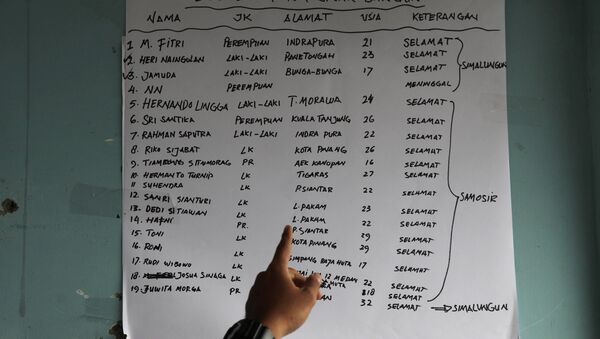 NAMA JK ALAMAT USIA KETERANGAN
1 M. FITRI PEREMPUAN INDRAPURA 21 SELAMAT
2. HERI NAINGOLAN LAKI-LAKI PANETONGAH 23 SELAMAT
3. JAMUDA LAKI-LAKI BUNGA-BUNGA 17 SELAMAT SIMALUNGUN
4. NN PEREMPUAN MENINGGAL
5. HERNANDO LINGGA LAKI-LAKI T. MORAWA 24 SELAMAT
6. SRI SANTIKA PEREMPUAN KUALA TANJUNG 26 SELAMAT
7. RAHMAN SAPUTRA LAKI-LAKI INDRA PURA 22 SELAMAT
8. RIKO SIJABAT LK KOTA PINANG 26 SELAMAT
9. TIAMBUNG SITUMORAG PR AEK KANOPAN 16 SELAMAT
10. HERMANTO TURNIP LK TIGARAS 27 SELAMAT
11 SUHENDRA LK P.SIANTAR 22 SELAMAT SAMOSIR
12. SANRI SIANTURI LK L. PAKAM 23 SELAMAT
13. DEDI SETIAWAN LK L. PAKAM 22 SELAMAT
14. HAPNI PR. P. SIANTAR 29 SELAMAT
15. TONI LK KOTA PINANG 29 SELAMAT
16. RONI LK 17 SELAMAT
17. RUDI WIBOWO LK 12 MEDAN 22 SELAMAT
18. JOSUA SINAGA LK SELAMAT
19. JUWITA MORGA PR 32 SELAMAT SIMALUNGUN